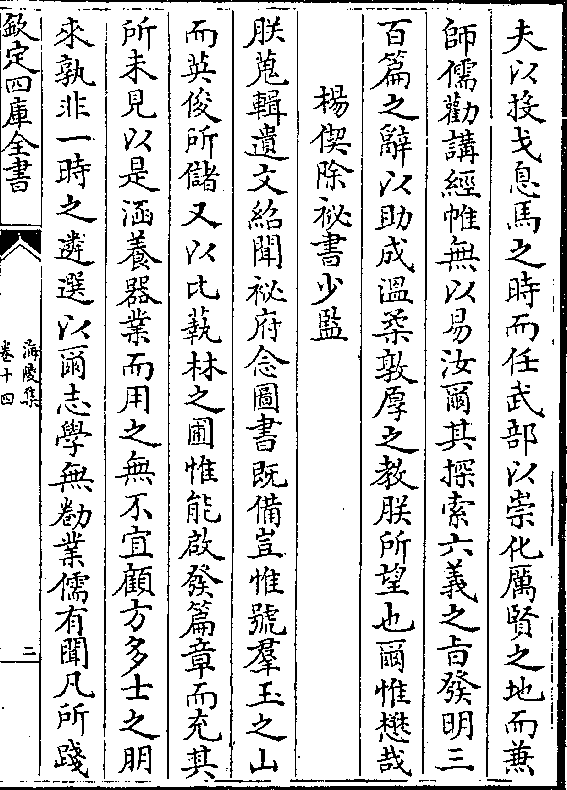 夫以投戈息馬之時而任武部以崇化厲賢之地而兼
師儒勸講經帷無以易汝爾其探索六義之旨發明三
百篇之辭以助成溫柔敦厚之教朕所望也爾惟懋哉
楊偰除祕書少監
朕蒐輯遺文紹聞祕府念圖書既備豈惟號羣玉之山
而英俊所儲又以比蓺林之圃惟能啟發篇章而充其
所未見以是涵養器業而用之無不宜顧方多士之朋
來孰非一時之遴選以爾志學無勌業儒有聞凡所踐
欽定四庫全書
海陵集
卷十四
二